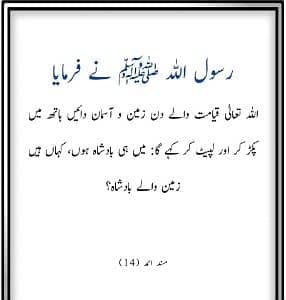 رسول اللہ ﷺ نے فرمایا
اللہ تعالیٰ قیامت والے دن زمین و آسمان دائیں ہاتھ میں
پکڑ کر اور لپیٹ کر کہے گا: میں ہی بادشاہ ہوں، کہاں ہیں
زمین والے بادشاہ؟
مسند احمد (14)